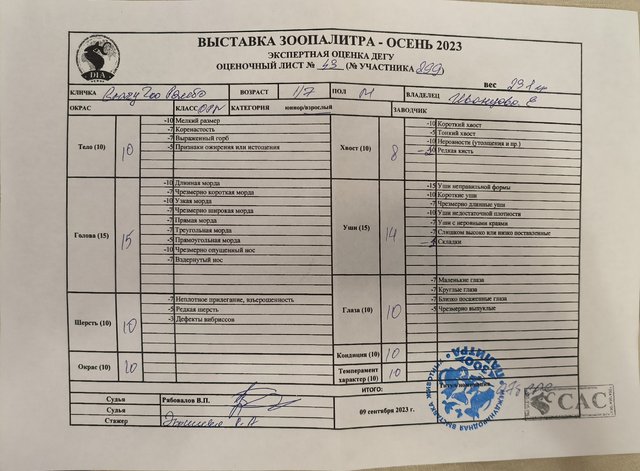 ВЫСТАВКА ЗООПАЛИТРА - ОСЕНЬ 2023
ЭКСПЕРТНАЯ ОЦЕНКА ДЕГУ
ОЦЕНОЧНЫЙ ЛИСТ № 43 (№ УЧАСТНИКА 899)
DIA
вес 231 гр
КЛИЧКА ВОЗРАСТ 1/7 ПОЛ М ВЛАДЕЛЕЦ
ОКРАС КЛАСС КАТЕГОРИЯ юниор/взрослый ЗАВОДЧИК
Тело (10) 10
-10 Мелкий размер
-7 Коренастость
-7 Выраженный горб
-5 Признаки ожирения или истощения
Хвост (10) 8
-10 Короткий хвост
-5 Тонкий хвост
-10 Неровности (утолщения и пр.)
Редкая кисть
Голова (15) 15
-10 Длинная морда
-7 Чрезмерно короткая морда
-10 Узкая морда
-7 Чрезмерно широкая морда
-7 Прямая морда
-7 Треугольная морда
-5 Прямоугольная морда
-10 Чрезмерно опущенный нос
-7 Вздернутый нос
Уши (15) 14
-15 Уши неправильной формы
-10 Короткие уши
-7 Чрезмерно длинные уши
-10 Уши недостаточной плотности
-7 Уши с неровными краями
-7 Слишком высоко или низко поставленные
Складки
Шерсть (10) 10
-7 Неплотное прилегание, взъерошенность
-5 Редкая шерсть
-3 Дефекты вибриссов
Глаза (10) 10
-7 Маленькие глаза
-7 Круглые глаза
-7 Близко посаженные глаза
-5 Чрезмерно выпуклые
Окрас (10) 10
Кондиция (10) 10
Темперамент характер (10) 10
ИТОГО:
Судья Рябовалов В.П.
Судья
Стажер
09 сентября 2023 г.
ЗООПАЛИТРА
МЕЖДУНАРОДНАЯ ВЫСТАВКА
CAC